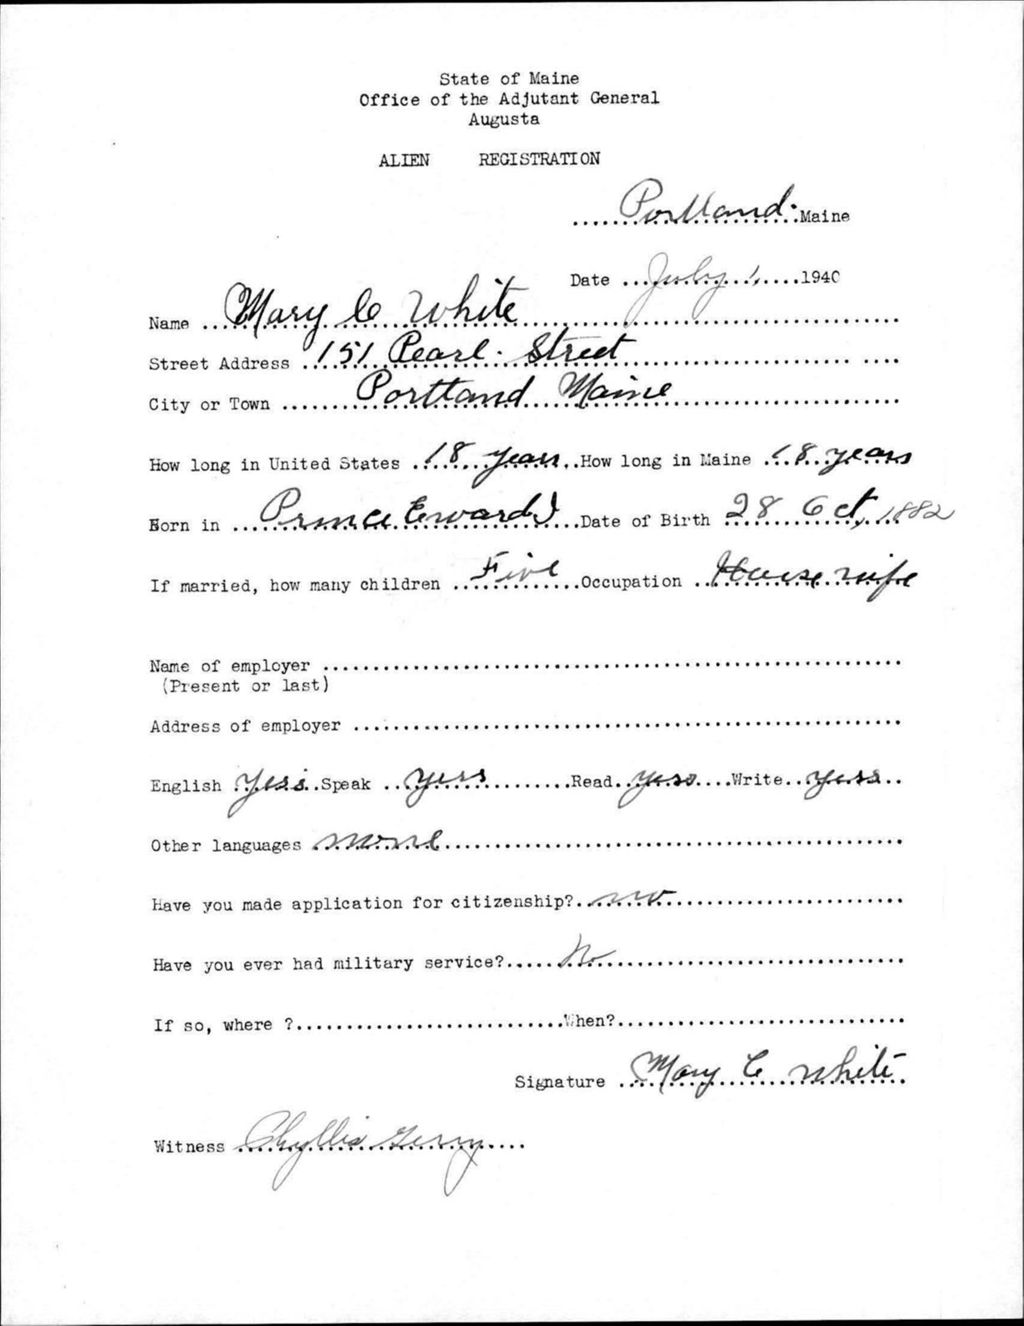 State of Maine
Office of the Adjutant General
Augusta
ALIEN REGISTRATION
Portland Maine
Date July 1, 1940
Name Mary C White
Street Address 151 Pearl. Street
City or Town Portland Maine
How long in United States 18 years How long in Maine 18 years
Born in Prince Eward I Date of Birth 28 Oct, 1882
If married, how many children Five Occupation House wife
Name of employer
(Present or last)
Address of employer
English Yess Speak yess Read yess Write yess
Other languages none
Have you made application for citizenship? no
Have you ever had military service? No
If so, where ? When?
Signature Mary C White
Witness Phyllis Gerry